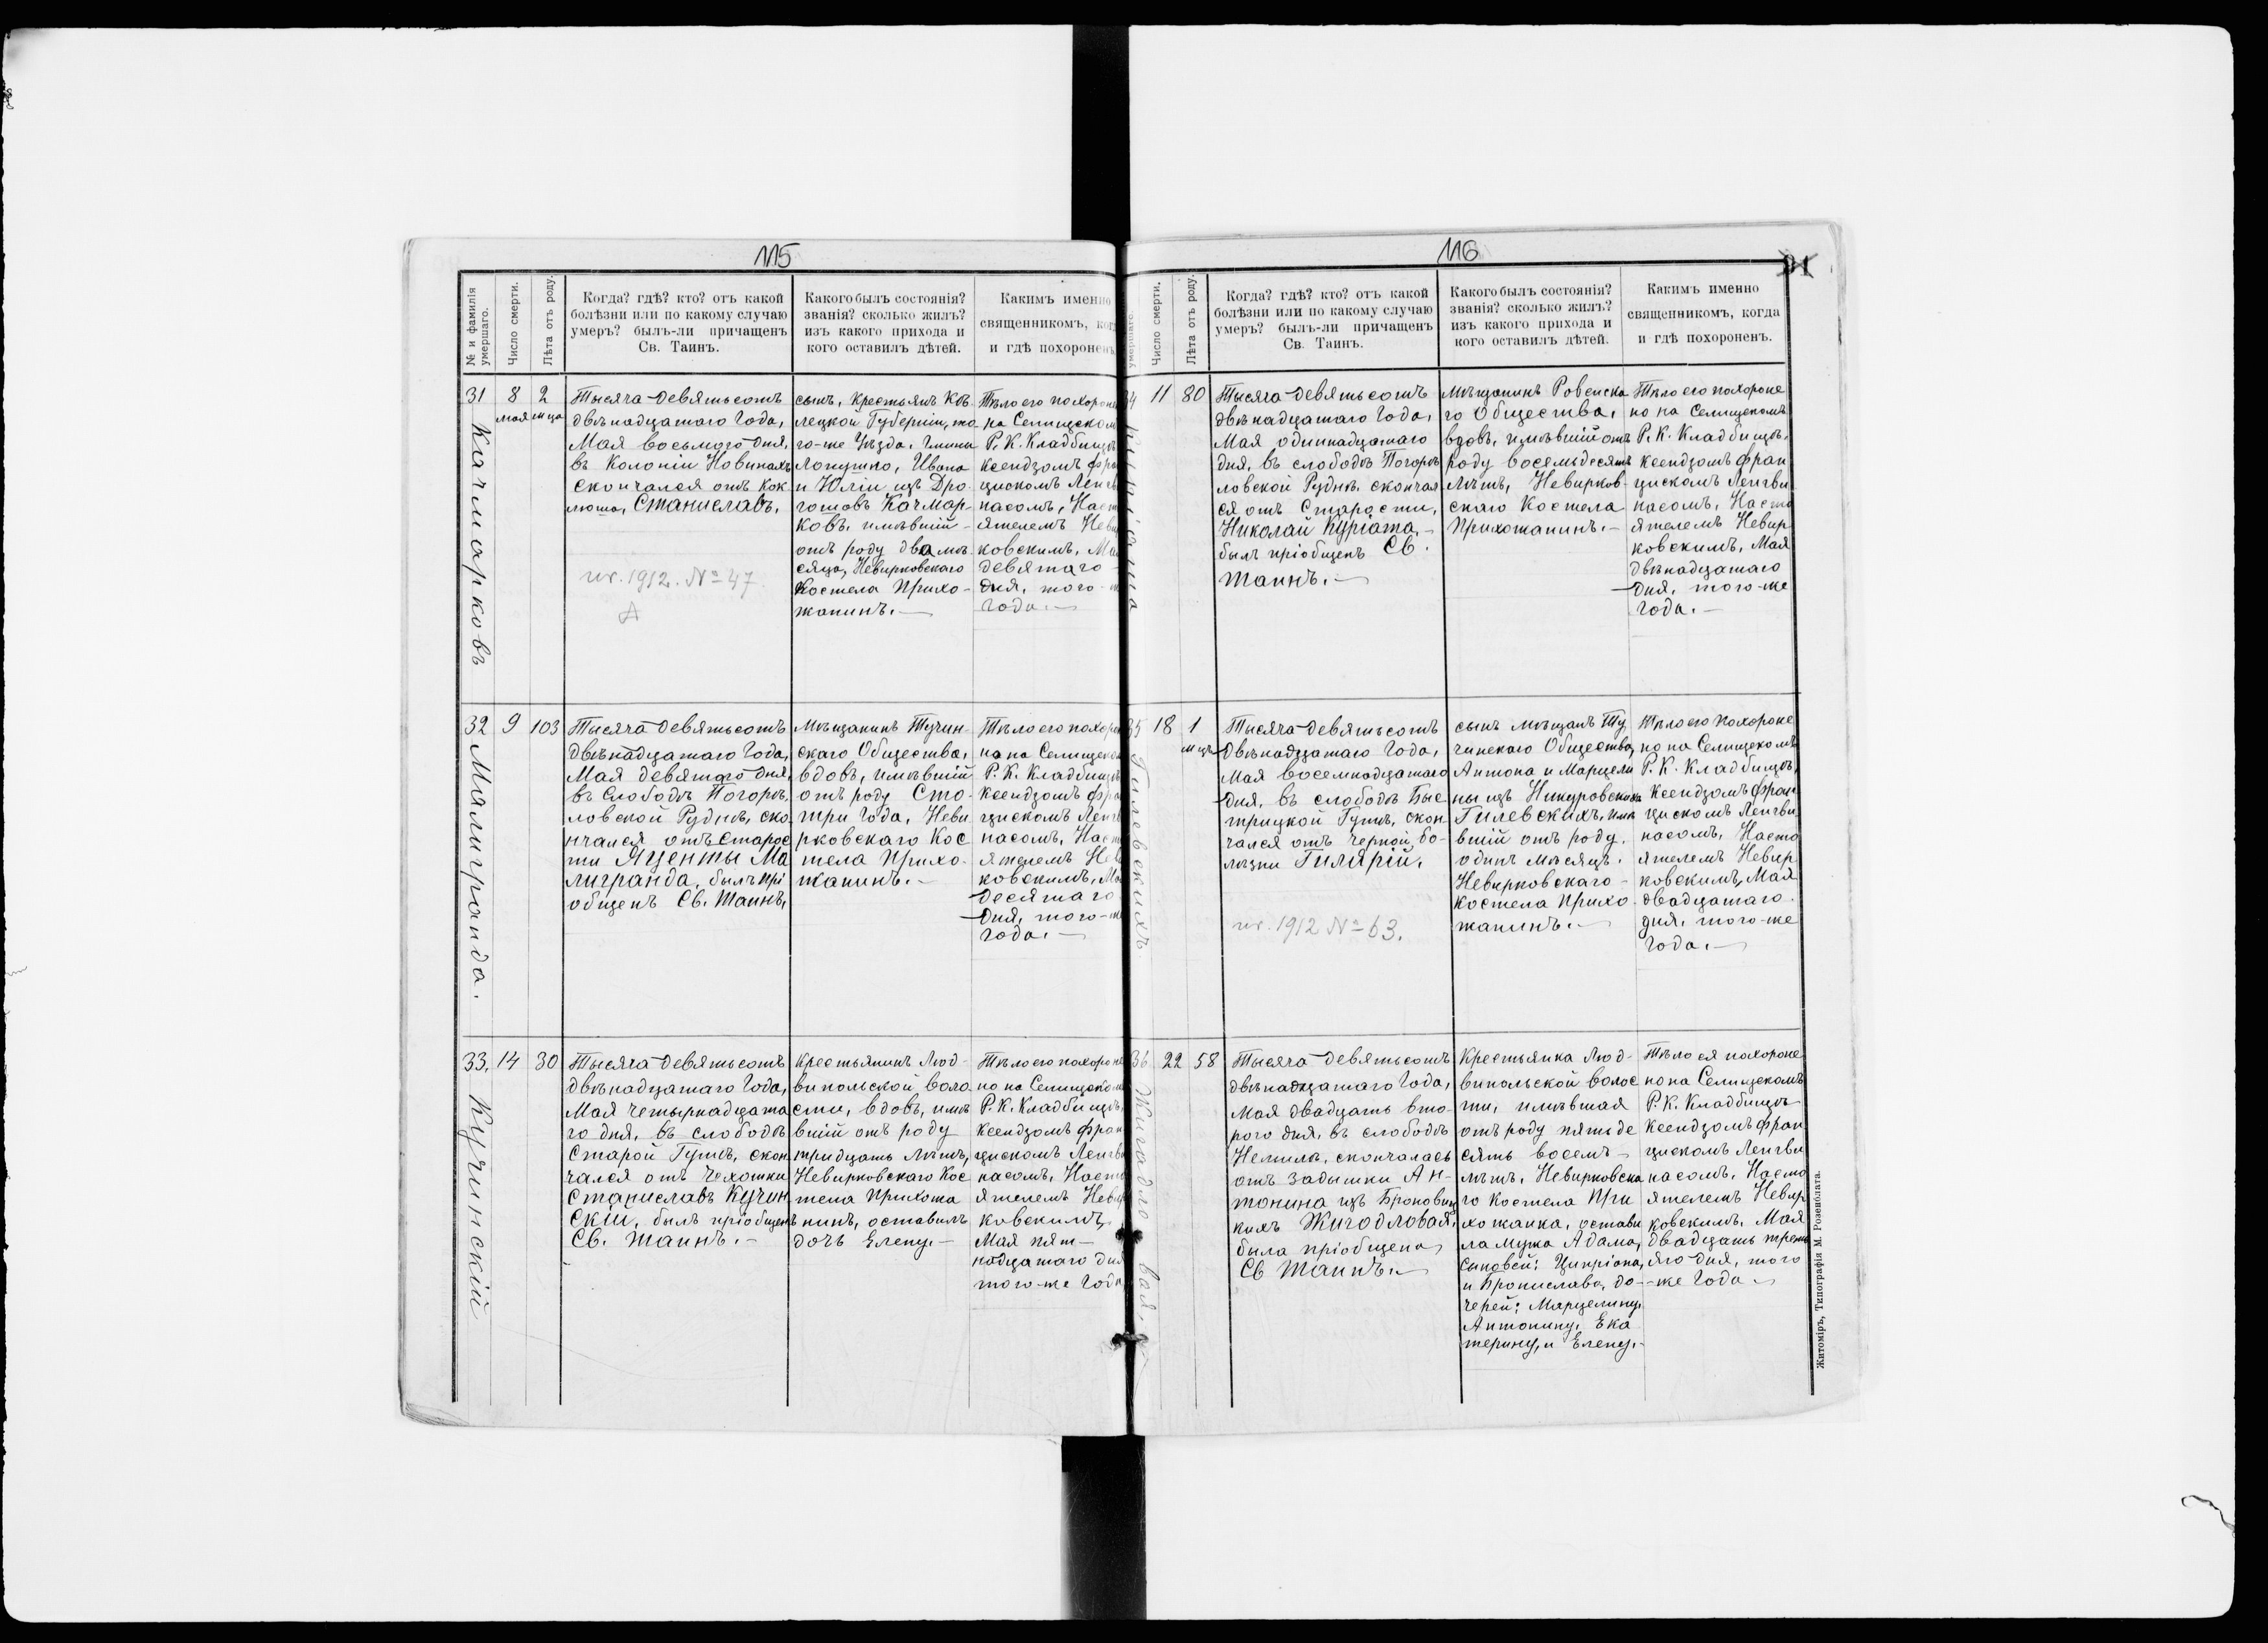 115
№ и фамилія умершаго.
Число смерти.
Лѣта отъ роду.
Когда? гдѣ? кто? отъ какой
болѣзни или по какому случаю
умеръ? былъ-ли причащенъ
Св. Таинъ.
Какого былъ состоянія?
званія? сколько жилъ?
изъ какого прихода и
кого оставилъ дѣтей.
Какимъ именно
священникомъ,
и гдѣ похороненъ
31
8
мая
2
мца
Качмарковъ
Тысяча девятьсотъ
двѣнадцатаго Года,
Мая восьмого дня,
въ Колоніи Новинахъ
скончался отъ Кок
люша, Станиславъ.
nr. 1912. № 47
A
сынъ, Крестьянъ Кѣ
лецкой Губерніи, то
го-же Уѣзда, Гмины
Лопушно, Ивана
и Юліи изъ Дро
гошовъ Качмар-
ковъ, имѣвшій
отъ роду два мѣ
сяца, Невирковскаго
Костела Прихо-
жанинъ.—
Тѣло его похороне
на Селищском
Р. К. Кладбищѣ
Ксендзомъ Фра
цискомъ Ленгв
насомъ, Наст
ятелемъ Невир
ковскимъ, Ма
девятаго
дня, того-ж
Года.—
32
9
103
Малигранда.
Тысяча девятьсотъ
двѣнадцатаго Года,
Мая девятаго дня,
въ Слободѣ Погорѣ
ловской Руднѣ, ско
нчался отъ Старос
ти Яценты Ма
лигранда, былъ прі
общенъ Св. Таинъ,
Мѣщанинъ Тучин-
скаго Общества,
вдовъ, имѣвшій
отъ роду Сто-
три Года, Неви
рковскаго Кос
тела Прихо-
жанинъ.—
Тѣло его похорон
на Селищском
Р. К. Кладбищѣ
Ксендзомъ Фра
цискомъ Ленгв
насомъ, Наст
ятелемъ Нев
ковскимъ, Ма
десятаго
дня, того-же
Года.—
33.
14
30
Кучинскій
Тысяча девятьсотъ
двѣнадцатаго Года,
Мая четырнадцата
го дня, въ слободѣ
Старой Гутѣ, скон
чался отъ Чахотки
Станиславъ Кучин
скій, былъ пріобщенъ
Св. Таинъ.—
Крестьянинъ Люд-
випольской воло
сти, вдовъ, имѣ
вшій отъ роду
тридцать лѣтъ,
Невирковскаго Кос
тела Прихожа
нинъ, оставилъ
дочь Елену.—
Тѣло его похороне
но на Селищском
Р. К. Кладбищѣ,
Ксендзомъ Фран
цискомъ Ленгви
насомъ, Насто
ятелемъ Невир
ковскимъ,
Мая пят-
надцатаго дня
того-же Года,
116
91
умершаго.
Число смерти.
Лѣта отъ роду.
Когда? гдѣ? кто? отъ какой
болѣзни или по какому случаю
умеръ? былъ-ли причащенъ
Св. Таинъ.
Какого былъ состоянія?
званія? сколько жилъ?
изъ какого прихода и
кого оставилъ дѣтей.
Какимъ именно
священникомъ, когда
и гдѣ похороненъ.
34
11
80
Тысяча девятьсотъ
двѣнадцатаго Года,
Мая одиннадцатаго
дня, въ слободѣ Погорѣ
ловской Руднѣ, скончал
ся отъ Старости,
Николай Куріата,
былъ пріобщенъ Св.
Таинъ.—
Мѣщанинъ Ровенска
го Общества,
вдовъ, имѣвшій отъ
роду восемьдесятъ
Лѣтъ, Невирков-
скаго Костела
Прихожанинъ.—
Тѣло его похороне
но на Селищскомъ
Р. К. Кладбищѣ,
Ксендзомъ Фран
цискомъ Ленгви
насомъ, Насто
ятелемъ Невир
ковскимъ, Мая
двѣнадцатаго
дня, того-же
Года.—
35
18
1
мцъ
Гилевскихъ
Тысяча девятьсотъ
двѣнадцатаго Года,
Мая восемнадцатаго
дня, въ слободѣ Быс
трицкой Гутѣ, скон
чался отъ черной бо-
лѣзни Гилярій.
nr. 1912 № 63.
сынъ мѣщанъ Ту
чинскаго Общества,
Антона и Марцели
ны изъ Никуровскихъ
Гилевскихъ, имѣ
вшій отъ роду
одинъ мѣсяцъ.
Невирковскаго
Костела Прихо-
жанинъ.—
Тѣло его похороне
но на Селищскомъ
Р. К. Кладбищѣ,
Ксендзомъ Фран
цискомъ Ленгви
насомъ, Насто
ятелемъ Невир
ковскимъ, Мая
двадцатаго
дня, того-же
Года.—
36
22
58
Жигадловая,
Тысяча девятьсотъ
двѣнадцатаго Года,
Мая двадцать вто-
рого дня, въ слободѣ
Немиля, скончалась
отъ Задышки Ан-
тонина изъ Броновиц
кихъ Жигодловая,
была пріобщена
Св Таинъ.—
Крестьянка Люд-
випольской волос
ти, имѣвшая
отъ роду пятьде
сятъ восемь
лѣтъ, Невирковска
го Костела При
хожанка, остави
ла мужа Адама,
Сыновей: Ципріяна,
и Бронислава, до-
черей: Марцелину,
Антонину, Ека
терину, и Елену.—
Тѣло ея похороне
но на Селищскомъ
Р. К. Кладбищѣ
Ксендзомъ Фран
цискомъ Ленгви
насомъ, Насто
ятелемъ Невир
ковскимъ, Мая
двадцать треть
яго дня, того
-же Года.—
Житоміръ, Типографія М. Розенблата.